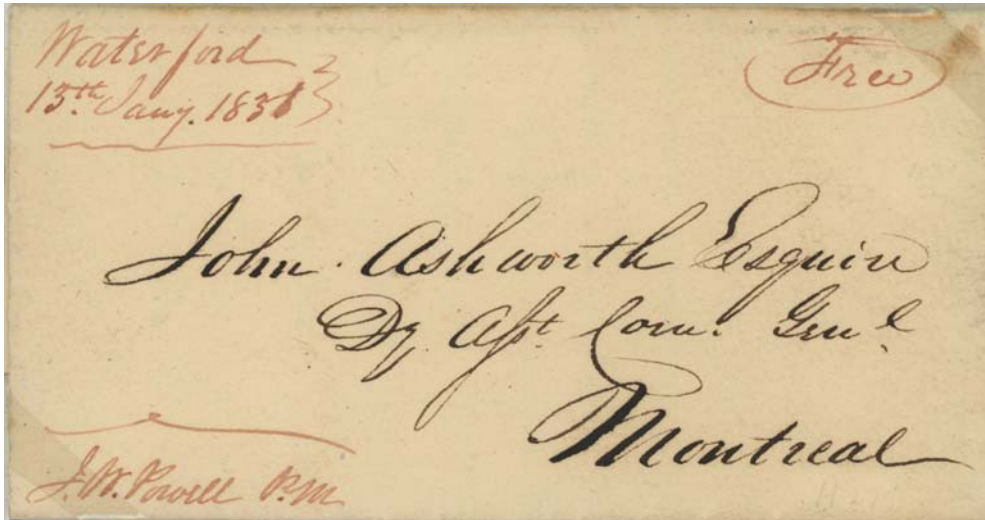 Waterford
13th Jany. 1838
Free
John Ashworth Esquire
Dy. Asst. Com. Genl.
Montreal
J. W. Powell P.M